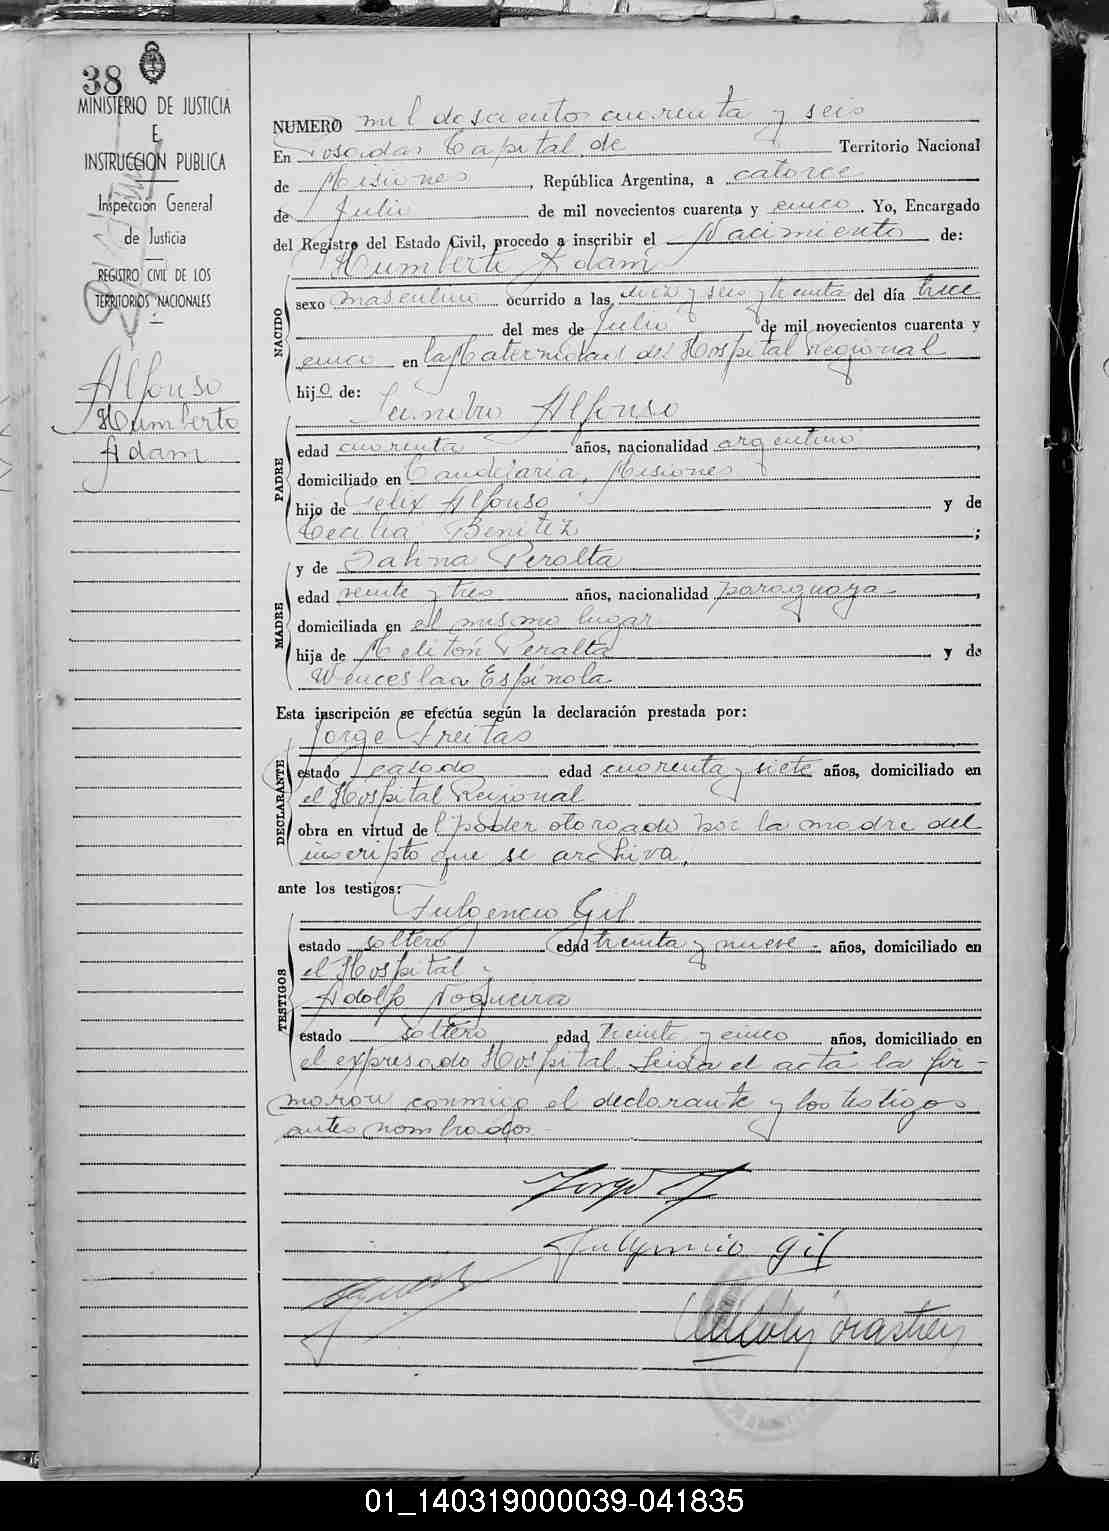 38
MINISTERIO DE JUSTICIA
E
INSTRUCCION PUBLICA
Inspección General
de Justicia
REGISTRO CIVIL DE LOS
TERRITORIOS NACIONALES
Alfonso
Humberto
Adam
NUMERO mil doscientos cuarenta y seis
En Posadas Capital de Territorio Nacional
de Misiones, República Argentina, a catorce
de Julio de mil novecientos cuarenta y cinco. Yo, Encargado
del Registro del Estado Civil, procedo a inscribir el Nacimiento de:
Humberto Adam
NACIDO
sexo masculino ocurrido a las diez y seis y treinta del día trece
del mes de Julio de mil novecientos cuarenta y
cinco en la Maternidad del Hospital Regional
hijo de:
Alfonso
PADRE
edad cuarenta años, nacionalidad argentino,
domiciliado en Candelaria, Misiones
hijo de Felix Alfonso y de
Cecilia Benitez;
y de Sabina Peralta
MADRE
edad veinte y tres años, nacionalidad paraguaya,
domiciliada en el mismo lugar
hija de Melitón Peralta y de
Wenceslaa Espínola
Esta inscripción se efectúa según la declaración prestada por:
Jorge Freitas
DECLARANTE
estado casado edad cuarenta y siete años, domiciliado en
el Hospital Regional
obra en virtud de l poder otorgado por la madre del
inscripto que se archiva,
ante los testigos:
Fulgencio Gil
TESTIGOS
estado soltero edad treinta y nueve años, domiciliado en
el Hospital y
Adolfo Nogueira
estado soltero edad treinta y cinco años, domiciliado en
el expresado Hospital. Leida el acta la fir-
maron conmigo el declarante y los testigos
antes nombrados.
Fulgencio Gil
01_140319000039-041835